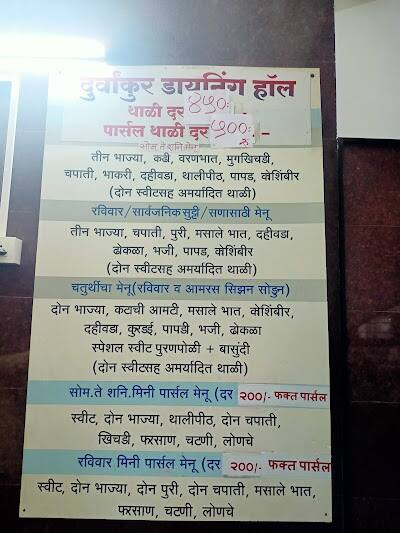 दुर्वांकुर डायनिंग हॉल
थाळी दर ४५०:-
पार्सल थाळी दर ५००:-
सोम.ते शनि.मेनू
तीन भाज्या, कढी, वरणभात, मुगखिचडी,
चपाती, भाकरी, दहीवडा, थालीपीठ, पापड, कोशिंबीर
(दोन स्वीटसह अमर्यादित थाळी)
रविवार/सार्वजनिक सुट्टी/सणासाठी मेनू
तीन भाज्या, चपाती, पुरी, मसाले भात, दहीवडा,
ढोकळा, भजी, पापड, कोशिंबीर
(दोन स्वीटसह अमर्यादित थाळी)
चतुर्थीचा मेनू(रविवार व आमरस सिझन सोडुन)
दोन भाज्या, कटाची आमटी, मसाले भात, कोशिंबीर,
दहीवडा, कुरडई, पापडी, भजी, ढोकळा
स्पेशल स्वीट पुरणपोळी + बासुंदी
(दोन स्वीटसह अमर्यादित थाळी)
सोम.ते शनि.मिनी पार्सल मेनू (दर २००/- फक्त पार्सल
स्वीट, दोन भाज्या, थालीपीठ, दोन चपाती,
खिचडी, फरसाण, चटणी, लोणचे
रविवार मिनी पार्सल मेनू (दर २००/- फक्त पार्सल
स्वीट, दोन भाज्या, दोन पुरी, दोन चपाती, मसाले भात,
फरसाण, चटणी, लोणचे